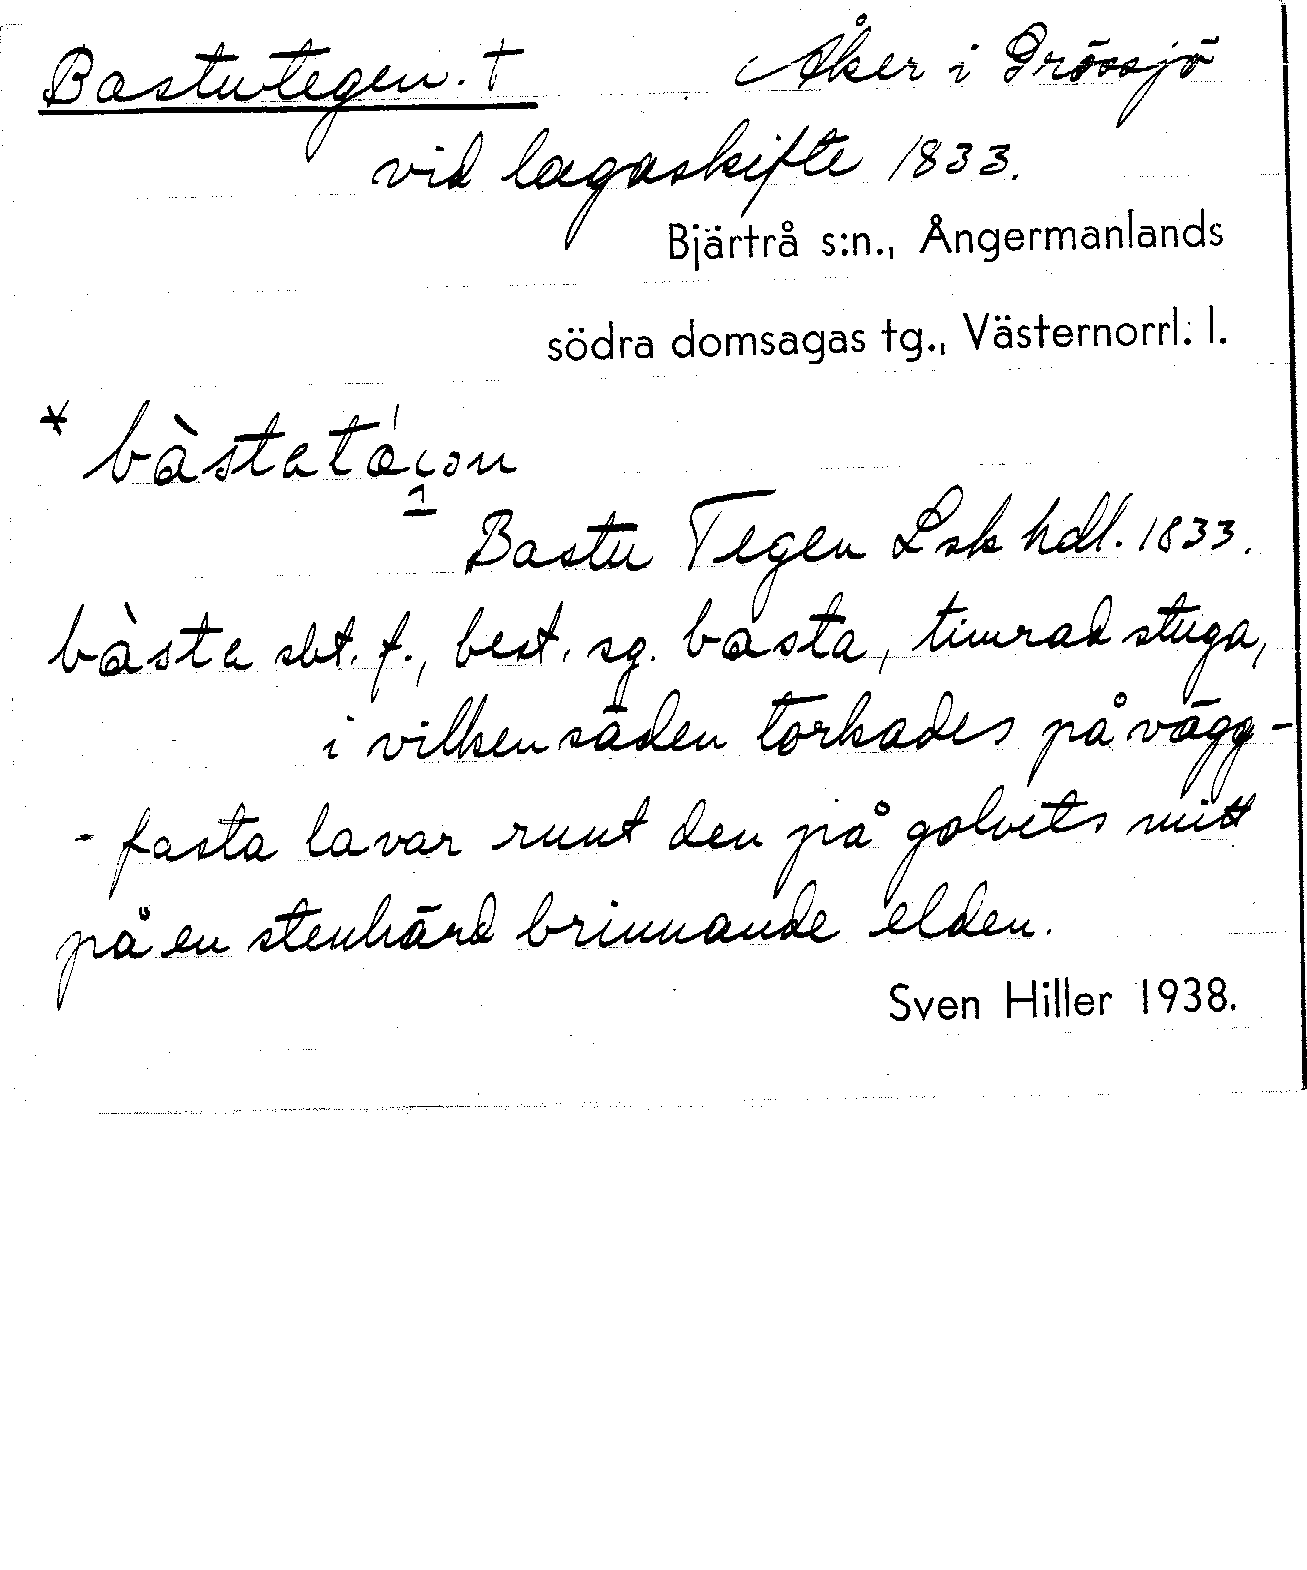 Bastutegen. † Åker i Grössjö
vid lagaskifte 1833.
Bjärtrå s:n., Ångermanlands
södra domsagas tg., Västernorrl. l.
* bàstatá
Bastu Tegen Lsk hdl. 1833.
bàsta sbt. f., best. sg. basta, timrad stuga,
i vilken säden torkades på vägg-
- fasta lavar runt den på golvets mitt
på en stenhärd brinnande elden.
Sven Hiller 1938.